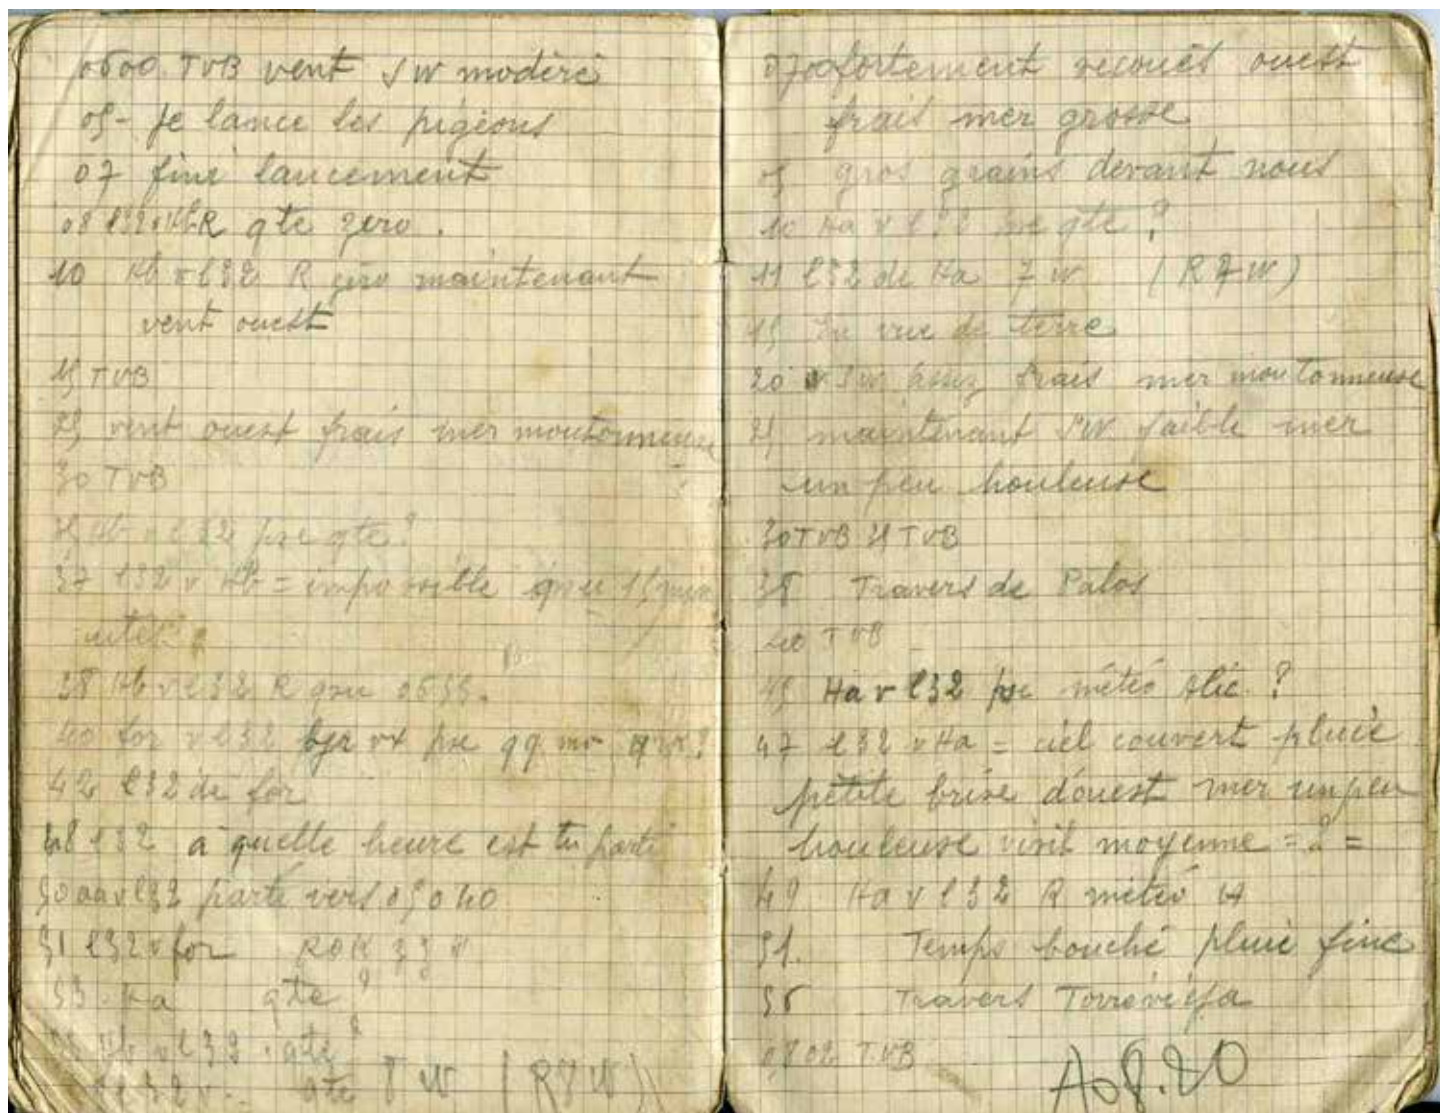 0600 TVB vent SW modéré
05- Je lance les pigeons
07 fini lancement
08 l32 v Hb R qte zero.
10 Hb v l32 R zéro maintenant
vent ouest
15 TVB
25 vent ouest frais mer moutonneuse
30 TVB
35 Hb v l32 pse qte?
37 l32 v Hb = impossible qru 15 min
utes
38 Hb v l32 R qru 0655.
40 for v l32 bjr vx pse qq mr qrx?
42 l32 de for
48 l32 a quelle heure est tu parti
50 aa v l32 parti vers 05040
51 l32 v for ROK
53. Ha qte?
Hb v l32 qte?
l32 v qte 8 W (R 8 W)
0700 fortement secoués ouest
frais mer grosse
05 gros grains devant nous
10 Ha v l32 pse qte?
11 l32 de Ha 7 W (R 7 W)
15 En vue de terre
20 v SW assez frais mer moutonneuse
25 maintenant SW faible mer
un peu houleuse
30 TVB 35 TVB
38 Travers de Palos
40 TVB
45 Ha v l32 pse météo Alic?
47 l32 v Ha = ciel couvert pluie
petite brise d'ouest mer un peu
houleuse visit moyenne = ? =
49 Ha v l32 R météo
51. Temps bouché pluie fine
56 Travers Torrevieja
0802 TVB
A 08.20